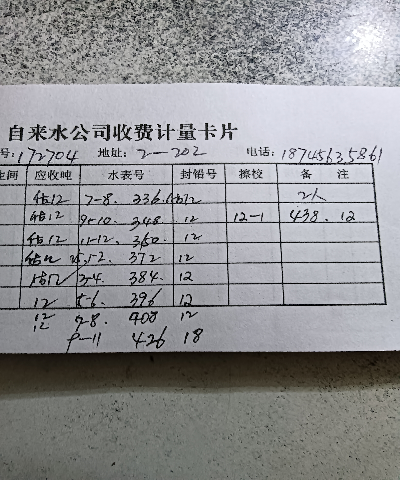 自来水公司收费计量卡片
号:172704 地址: 2-202 电话: 18745635861
间 应收吨 水表号 封铅号 擦校 备 注
估12 7-8. 336. 12
估12 9-10 348 12 12-1 438. 12
估12 11-12. 360 12
估12 1-2. 372 12
估12 3-4. 384 12
12 5-6. 396 12
12 7-8. 408 12
12
9-11 426 18